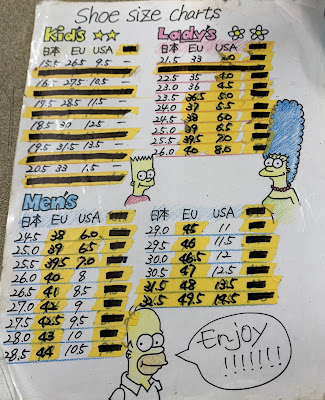 Shoe size charts
Kid's
日本 EU USA
15.5 26.5 9.5 -
16.5 27.5 10.5 -
19.5 28.5 11.5 -
18.5 30 12.5 -
19.5 31.5 13.5 -
20.5 33 1.5 -
Lady's
日本 EU USA
21.5 33
22.5 35 4.0
23.0 36 4.5
23.5 36.5 5.0
24.0 37 5.5
24.5 38 6.0
25.0 39 6.5
25.5 39.5 7.0
26.0 40 8.0
Men's
日本 EU USA
24.5 38 6.0
25.0 39 6.5
25.5 39.5 7.0
26.0 40 8
26.5 41 8.5
27.0 42 9
27.5 42.5 9.5
28.0 43 10
28.5 44 10.5
日本 EU USA
29.0 45 11
29.5 46 11.5
30.0 46.5 12
30.5 47 12.5
31.5 48 13.5
32.5 49.5 14.5
Enjoy
!!!!!!!